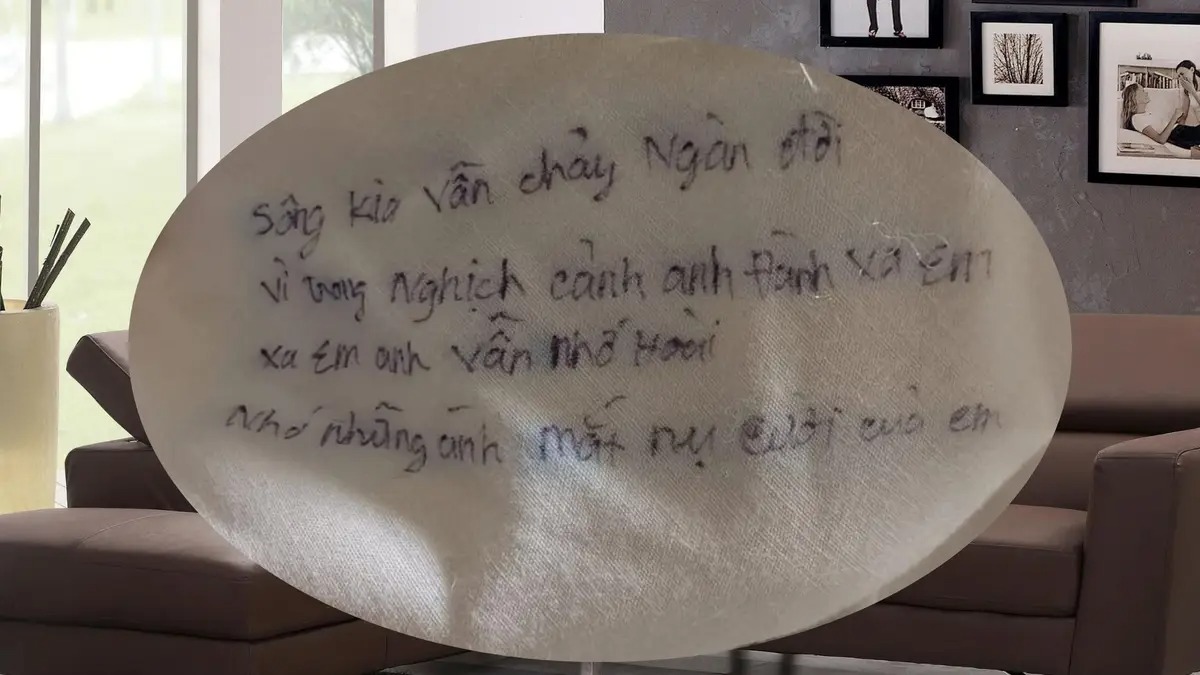 Sông kia vẫn chảy Ngàn đời
vì trong Nghịch cảnh anh Đành xa Em
xa Em anh vẫn nhớ Hoài
Nhớ những ánh mắt nụ cười của em